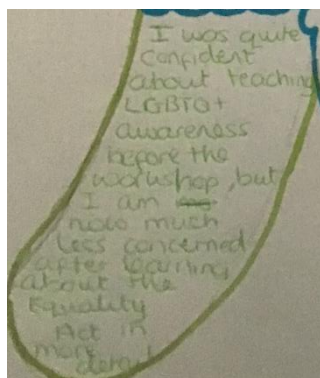 I was quite
confident
about teaching
LGBTQ+
awareness
before the
workshop, but
I am
now much
less concerned
after learning
about the
Equality
Act in
more
detail